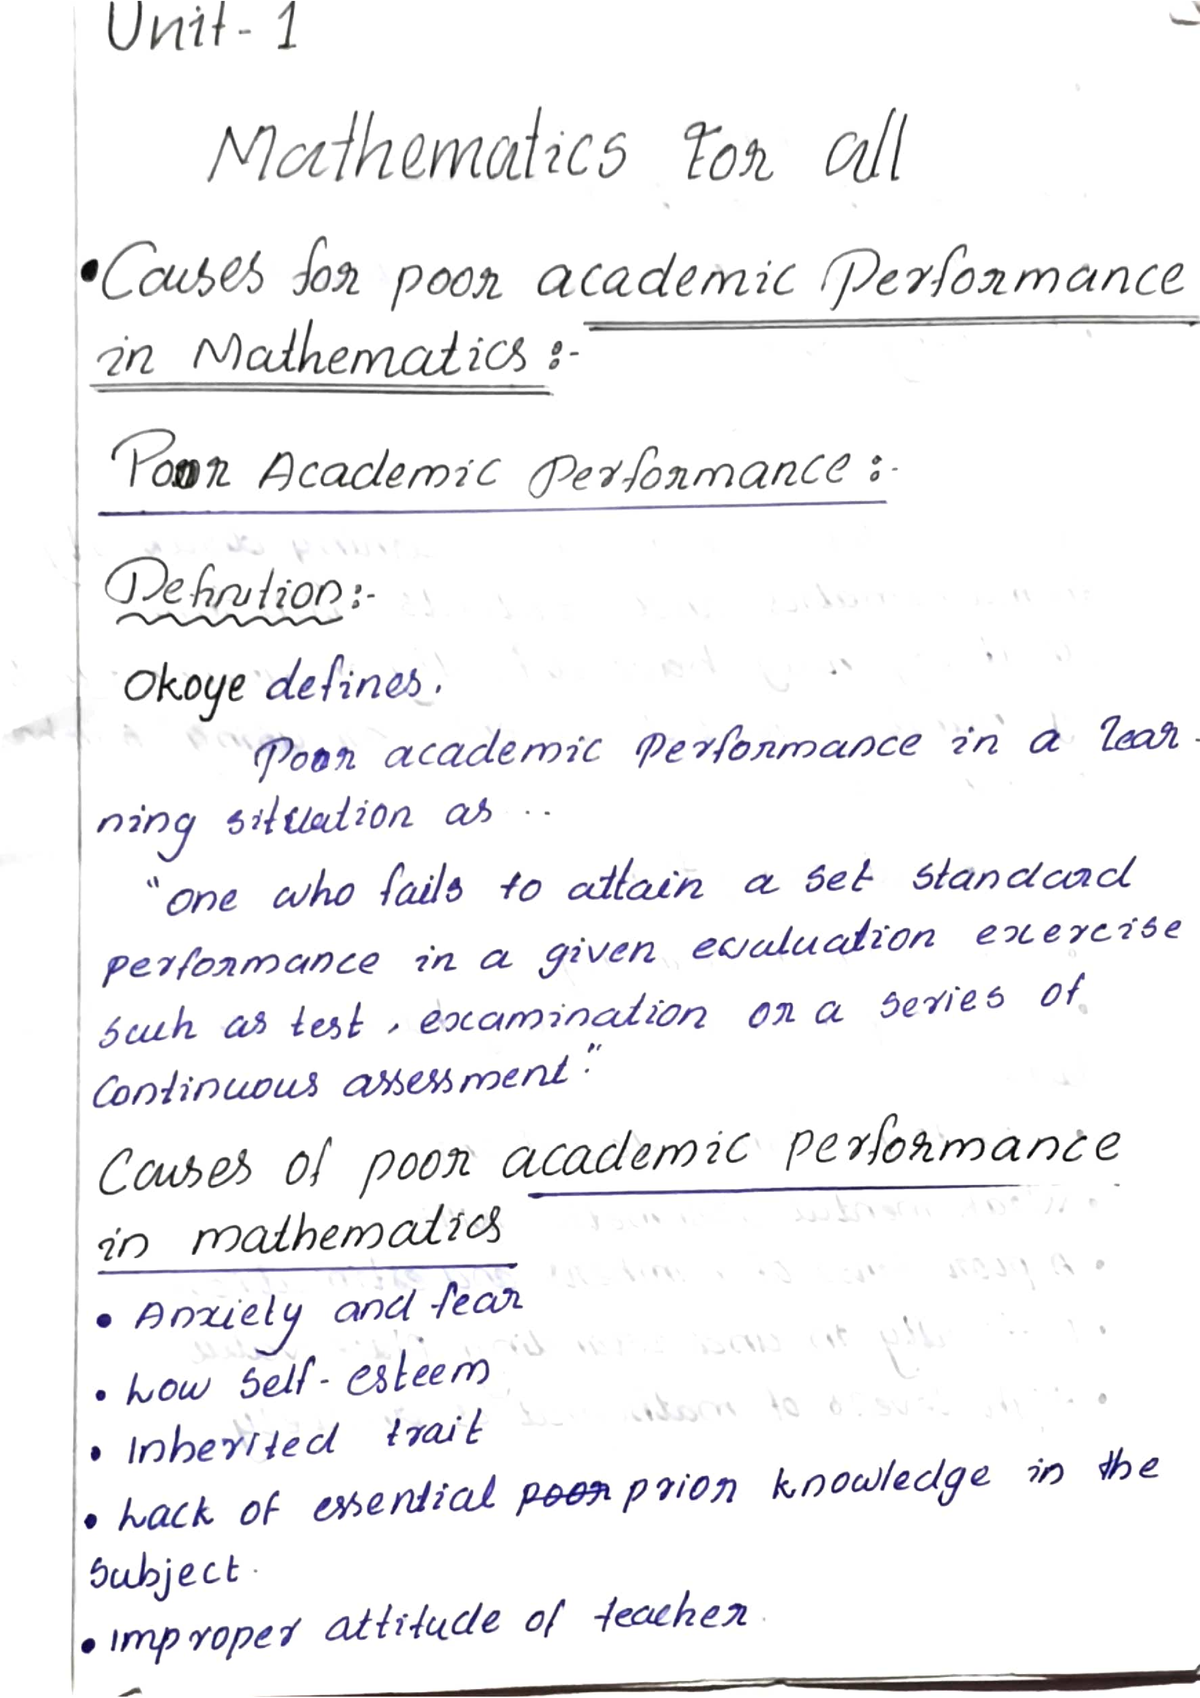 Unit - 1
Mathematics For all
• Causes for poor academic Performance
in Mathematics :-
Poor Academic Performance :-
Definition :-
Okoye defines.
Poor academic Performance in a lear-
ning situation as ..
"one who fails to attain a set standard
performance in a given evaluation exercise
such as test, examination or a series of
Continuous assessment."
Causes of poor academic performance
in mathematics
• Anxiety and fear
• Low self-esteem
• Inherited trait
• Lack of essential poor prior knowledge in the
subject.
• Improper attitude of teacher.